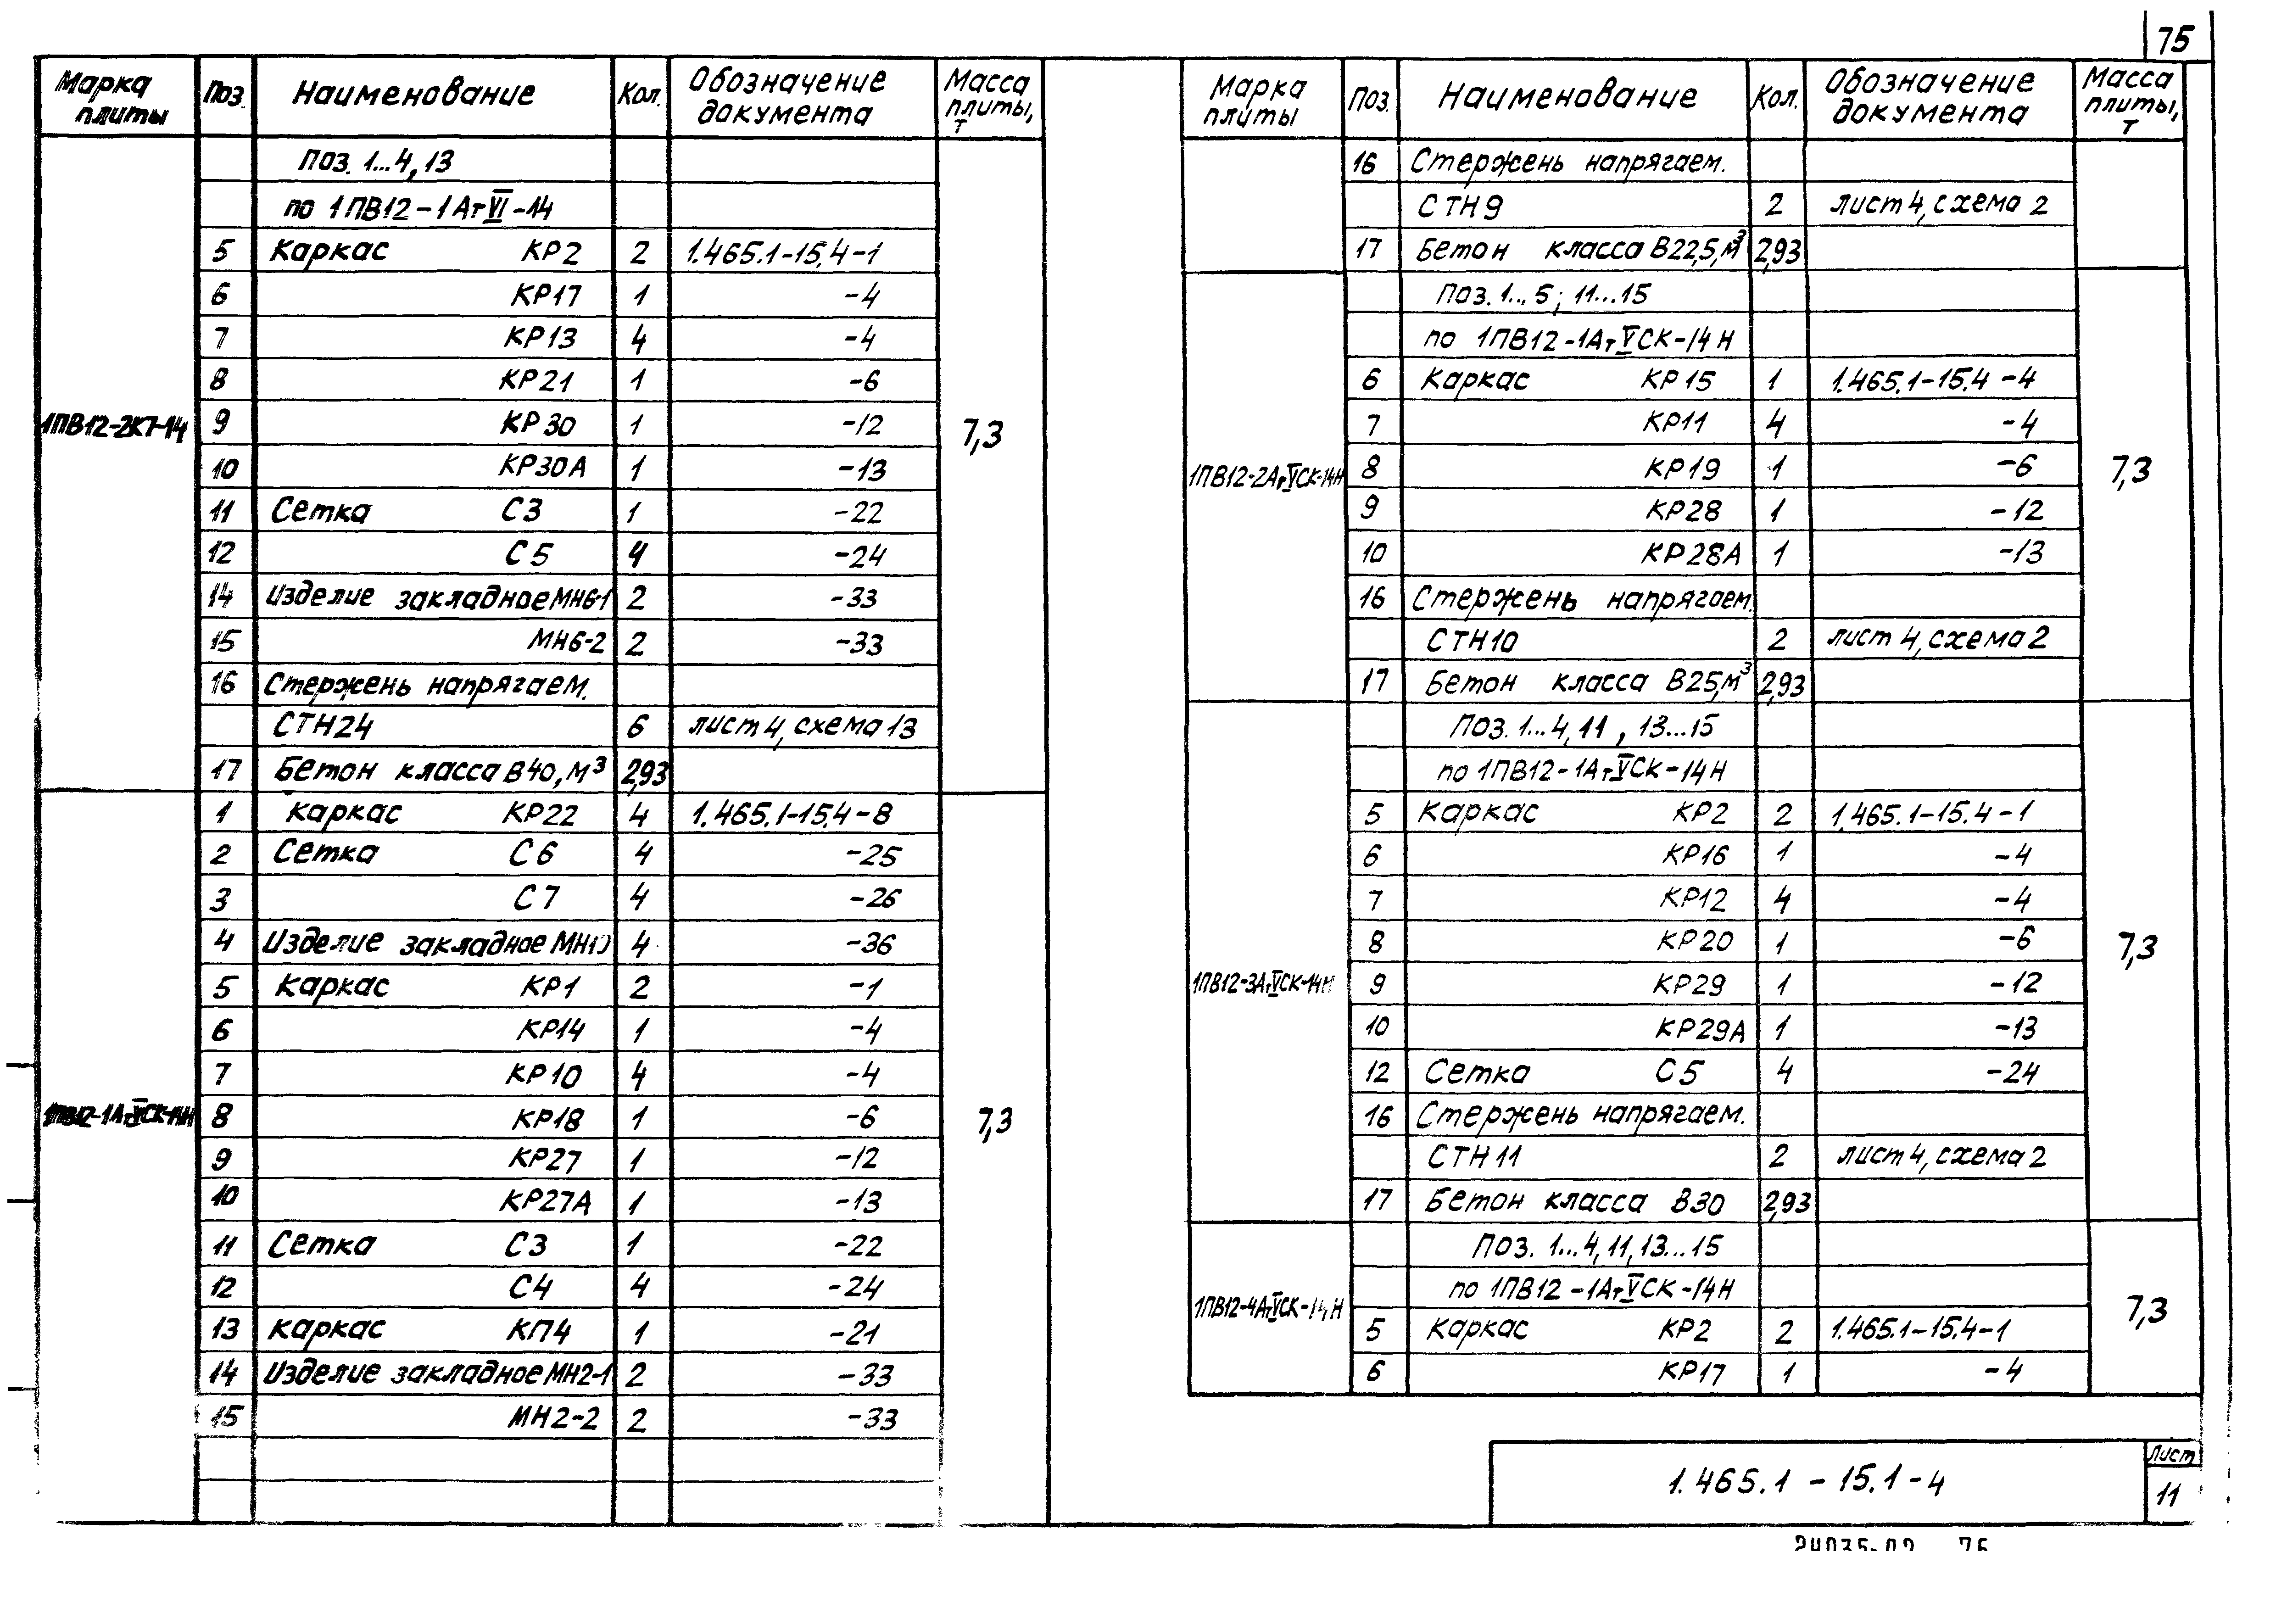 75
Марка плиты Поз. Наименование Кол. Обозначение документа Масса плиты, т
Поз. 1...4, 13
по 1ПВ12-1АтVI-14
5 Каркас КР2 2 1.465.1-15.4-1
6 КР17 1 -4
7 КР13 4 -4
8 КР21 1 -6
1ПВ12-2К7-14 9 КР30 1 -12 7,3
10 КР30А 1 -13
11 Сетка С3 1 -22
12 С5 4 -24
14 Изделие закладное МН6-1 2 -33
15 МН6-2 2 -33
16 Стержень напрягаем.
СТН24 6 лист 4, схема 13
17 Бетон класса В40, м³ 2,93
1 Каркас КР22 4 1.465.1-15.4-8
2 Сетка С6 4 -25
3 С7 4 -26
4 Изделие закладное МН10 4 -36
5 Каркас КР1 2 -1
6 КР14 1 -4
7 КР10 4 -4
1ПВ12-1АтVСК-14Н 8 КР18 1 -6 7,3
9 КР27 1 -12
10 КР27А 1 -13
11 Сетка С3 1 -22
12 С4 4 -24
13 Каркас КП4 1 -21
14 Изделие закладное МН2-1 2 -33
15 МН2-2 2 -33
Марка плиты Поз. Наименование Кол. Обозначение документа Масса плиты, т
16 Стержень напрягаем.
СТН9 2 лист 4, схема 2
17 Бетон класса В22,5, м³ 2,93
Поз. 1...5; 11...15
по 1ПВ12-1АтVСК-14Н
6 Каркас КР15 1 1.465.1-15.4-4
7 КР11 4 -4
1ПВ12-2АтVСК-14Н 8 КР19 1 -6 7,3
9 КР28 1 -12
10 КР28А 1 -13
16 Стержень напрягаем.
СТН10 2 лист 4, схема 2
17 Бетон класса В25, м³ 2,93
Поз. 1...4, 11, 13...15
по 1ПВ12-1АтVСК-14Н
5 Каркас КР2 2 1.465.1-15.4-1
6 КР16 1 -4
7 КР12 4 -4
8 КР20 1 -6 7,3
1ПВ12-3АтVСК-14Н 9 КР29 1 -12
10 КР29А 1 -13
12 Сетка С5 4 -24
16 Стержень напрягаем.
СТН11 2 лист 4, схема 2
17 Бетон класса В30 2,93
Поз. 1...4, 11, 13...15
по 1ПВ12-1АтVСК-14Н
1ПВ12-4АтVСК-14Н 5 Каркас КР2 2 1.465.1-15.4-1 7,3
6 КР17 1 -4
1.465.1-15.1-4
Лист
11